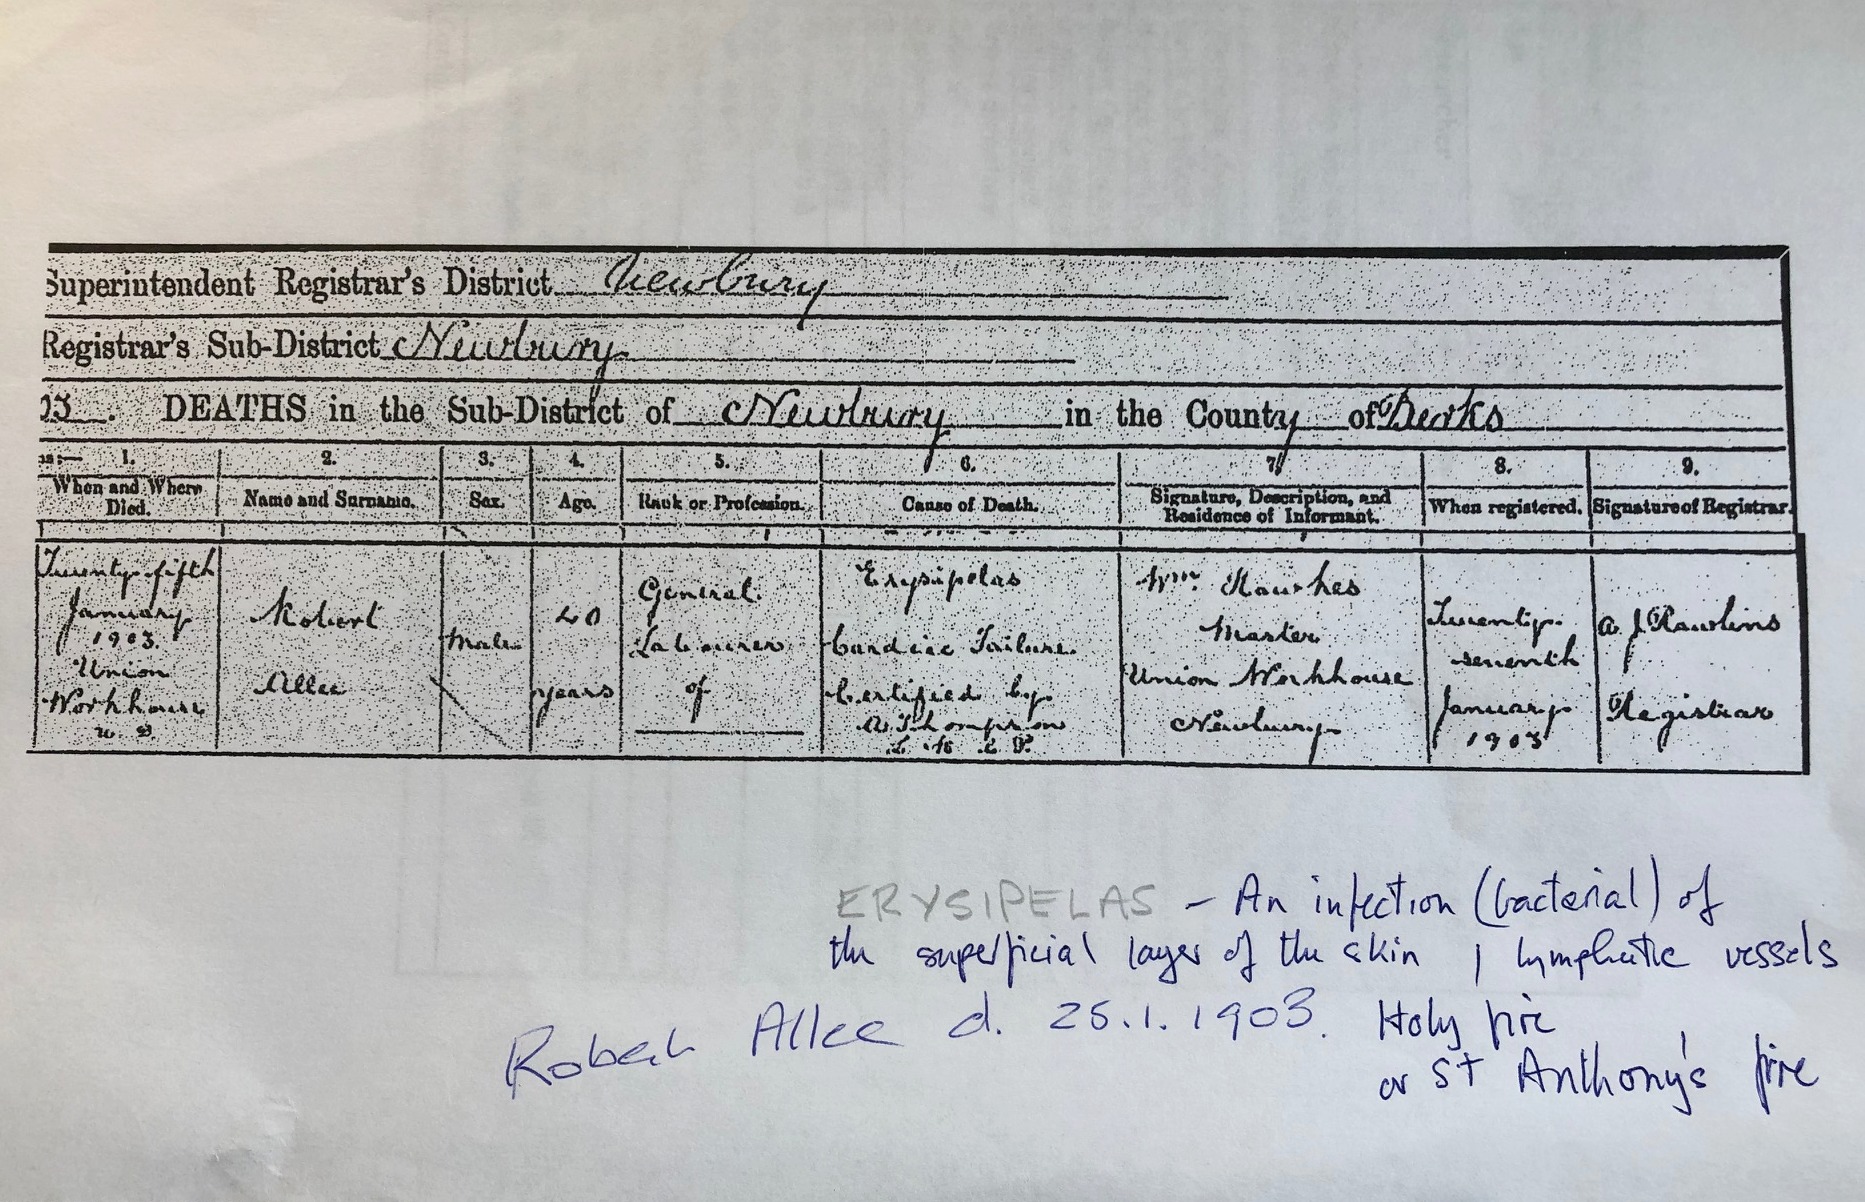 Superintendent Registrar's District Newbury
Registrar's Sub-District Newbury
03. DEATHS in the Sub-District of Newbury in the County of Berks
as:— 1. 2. 3. 4. 5. 6. 7. 8. 9.
When and Where Died. Name and Surname. Sex. Age. Rank or Profession. Cause of Death. Signature, Description, and Residence of Informant. When registered. Signature of Registrar.
Twenty-fifth
January
1903.
Union
Workhouse
Robert
Allee
Male
40
years
General
Labourer
of
Erysipelas
Cardiac Failure.
Certified by
A Thompson
L R C P.
Wm. Hawkes
Master
Union Workhouse
Newbury
Twenty-
seventh
January
1903
A J Rawlins
Registrar
ERYSIPELAS - An infection (bacterial) of
the superficial layer of the skin / lymphatic vessels
Robert Allee d. 25.1.1903. Holy fire
or St Anthony's fire